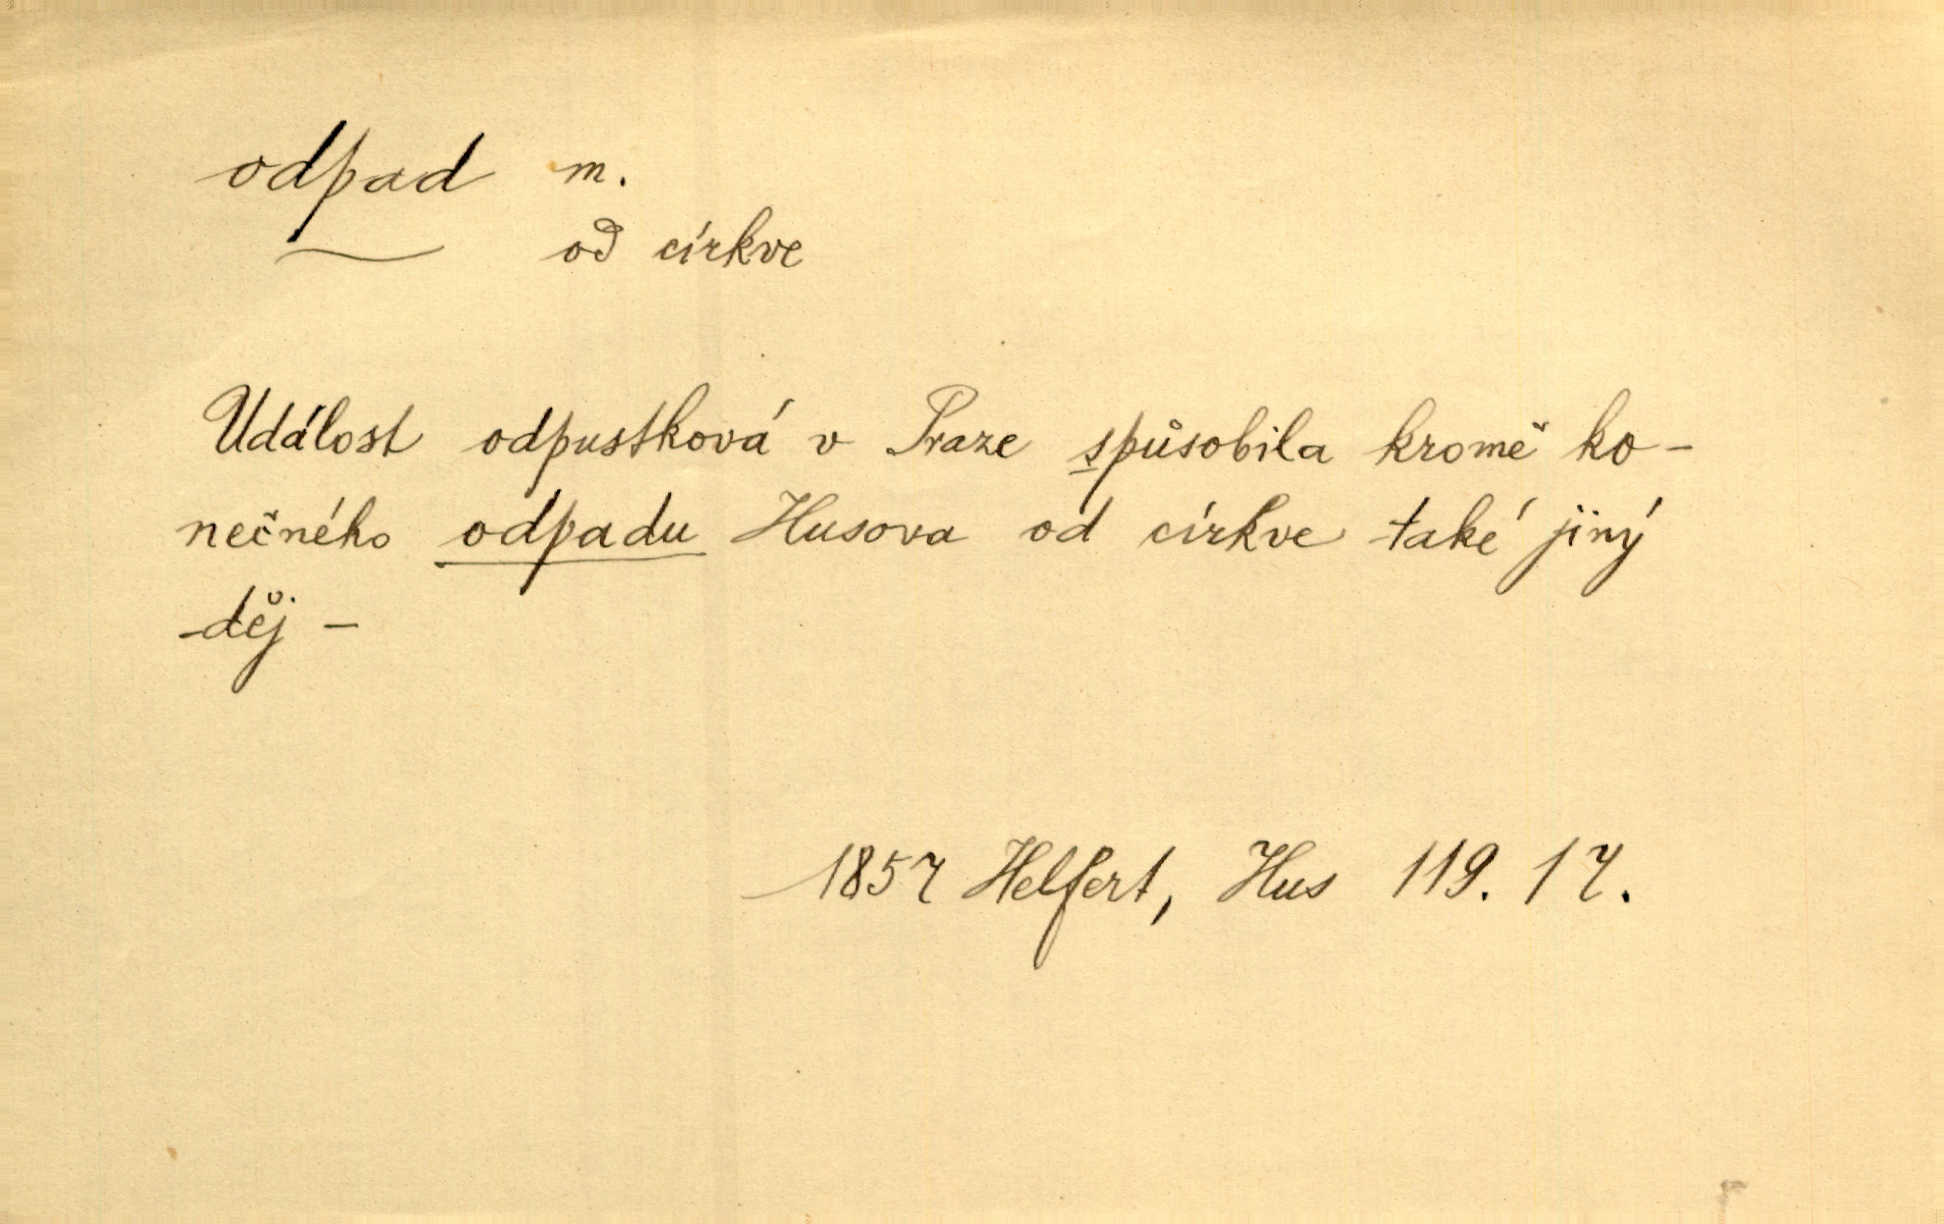 odpad m.
od církve
Událost odpustková v Praze spůsobila kromě ko-
nečného odpadu Husova od církve také jiný
děj -
1857 Helfert, Hus 119. 17.